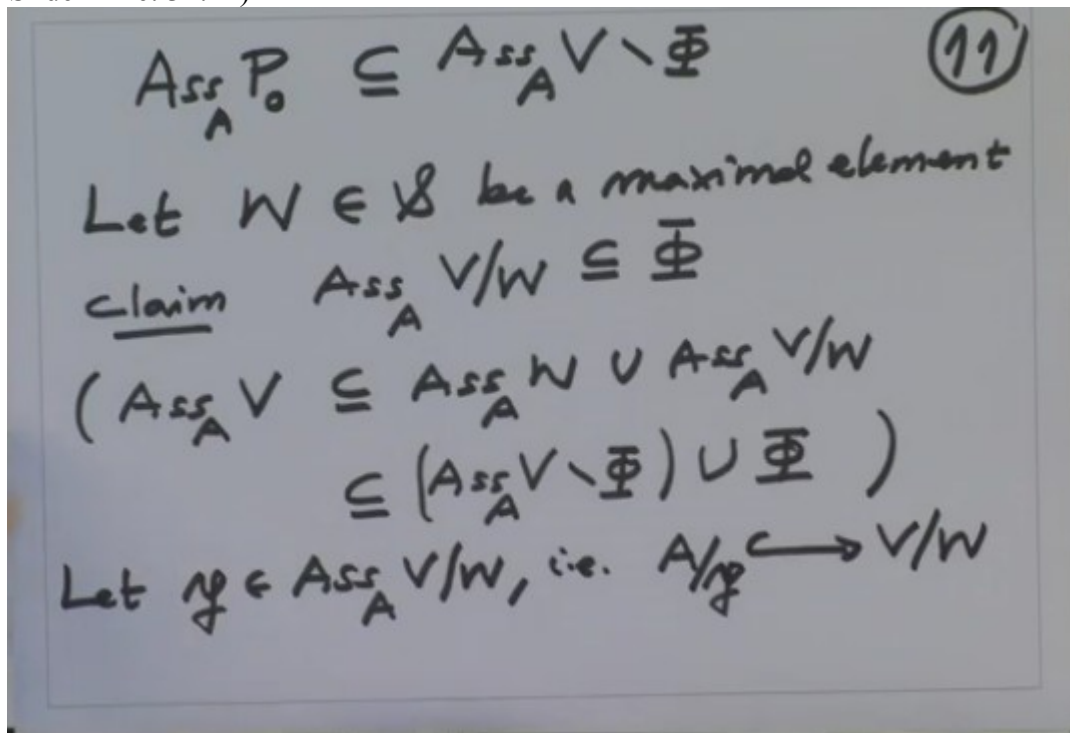 Ass_A P_0 ⊆ Ass_A V \ Φ
11
Let W ∈ 𝒮 be a maximal element
Claim Ass_A V/W ⊆ Φ
( Ass_A V ⊆ Ass_A W ∪ Ass_A V/W
⊆ (Ass_A V \ Φ) ∪ Φ )
Let 𝔭 ∈ Ass_A V/W, i.e. A/𝔭 ↪ V/W